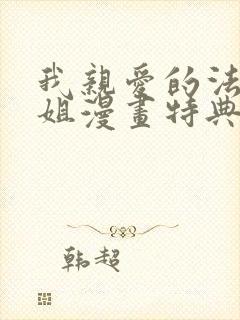 我親愛的法
姐漫畫特典
韩超